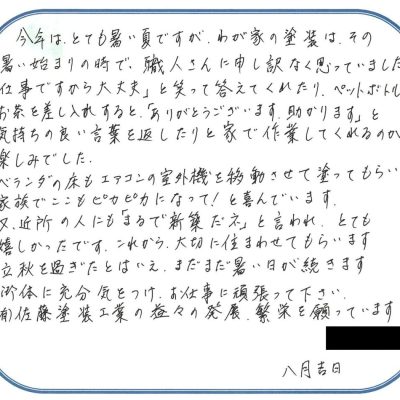 今年は、とても暑い夏ですが、わが家の塗装は、その
暑い始まりの時で、職人さんに申し訳なく思っていました
仕事ですから大丈夫」と笑って答えてくれたり、ペットボトル
お茶を差し入れすると、「ありがとうございます、助かります」と
気持ちの良い言葉を返したりと家で作業してくれるのが
楽しみでした。
ベランダの床もエアコンの室外機を移動させて塗ってもらい
家族でここもピカピカになって!と喜んでいます。
又、近所の人にも「まるで新築だネ」と言われ、とても
嬉しかったです。これから、大切に住まわせてもらいます
立秋を過ぎたとはいえ、まだまだ暑い日が続きます
御体に充分気をつけ、お仕事に頑張って下さい。
有)佐藤塗装工業の益々の発展、繁栄を願っています
八月吉日